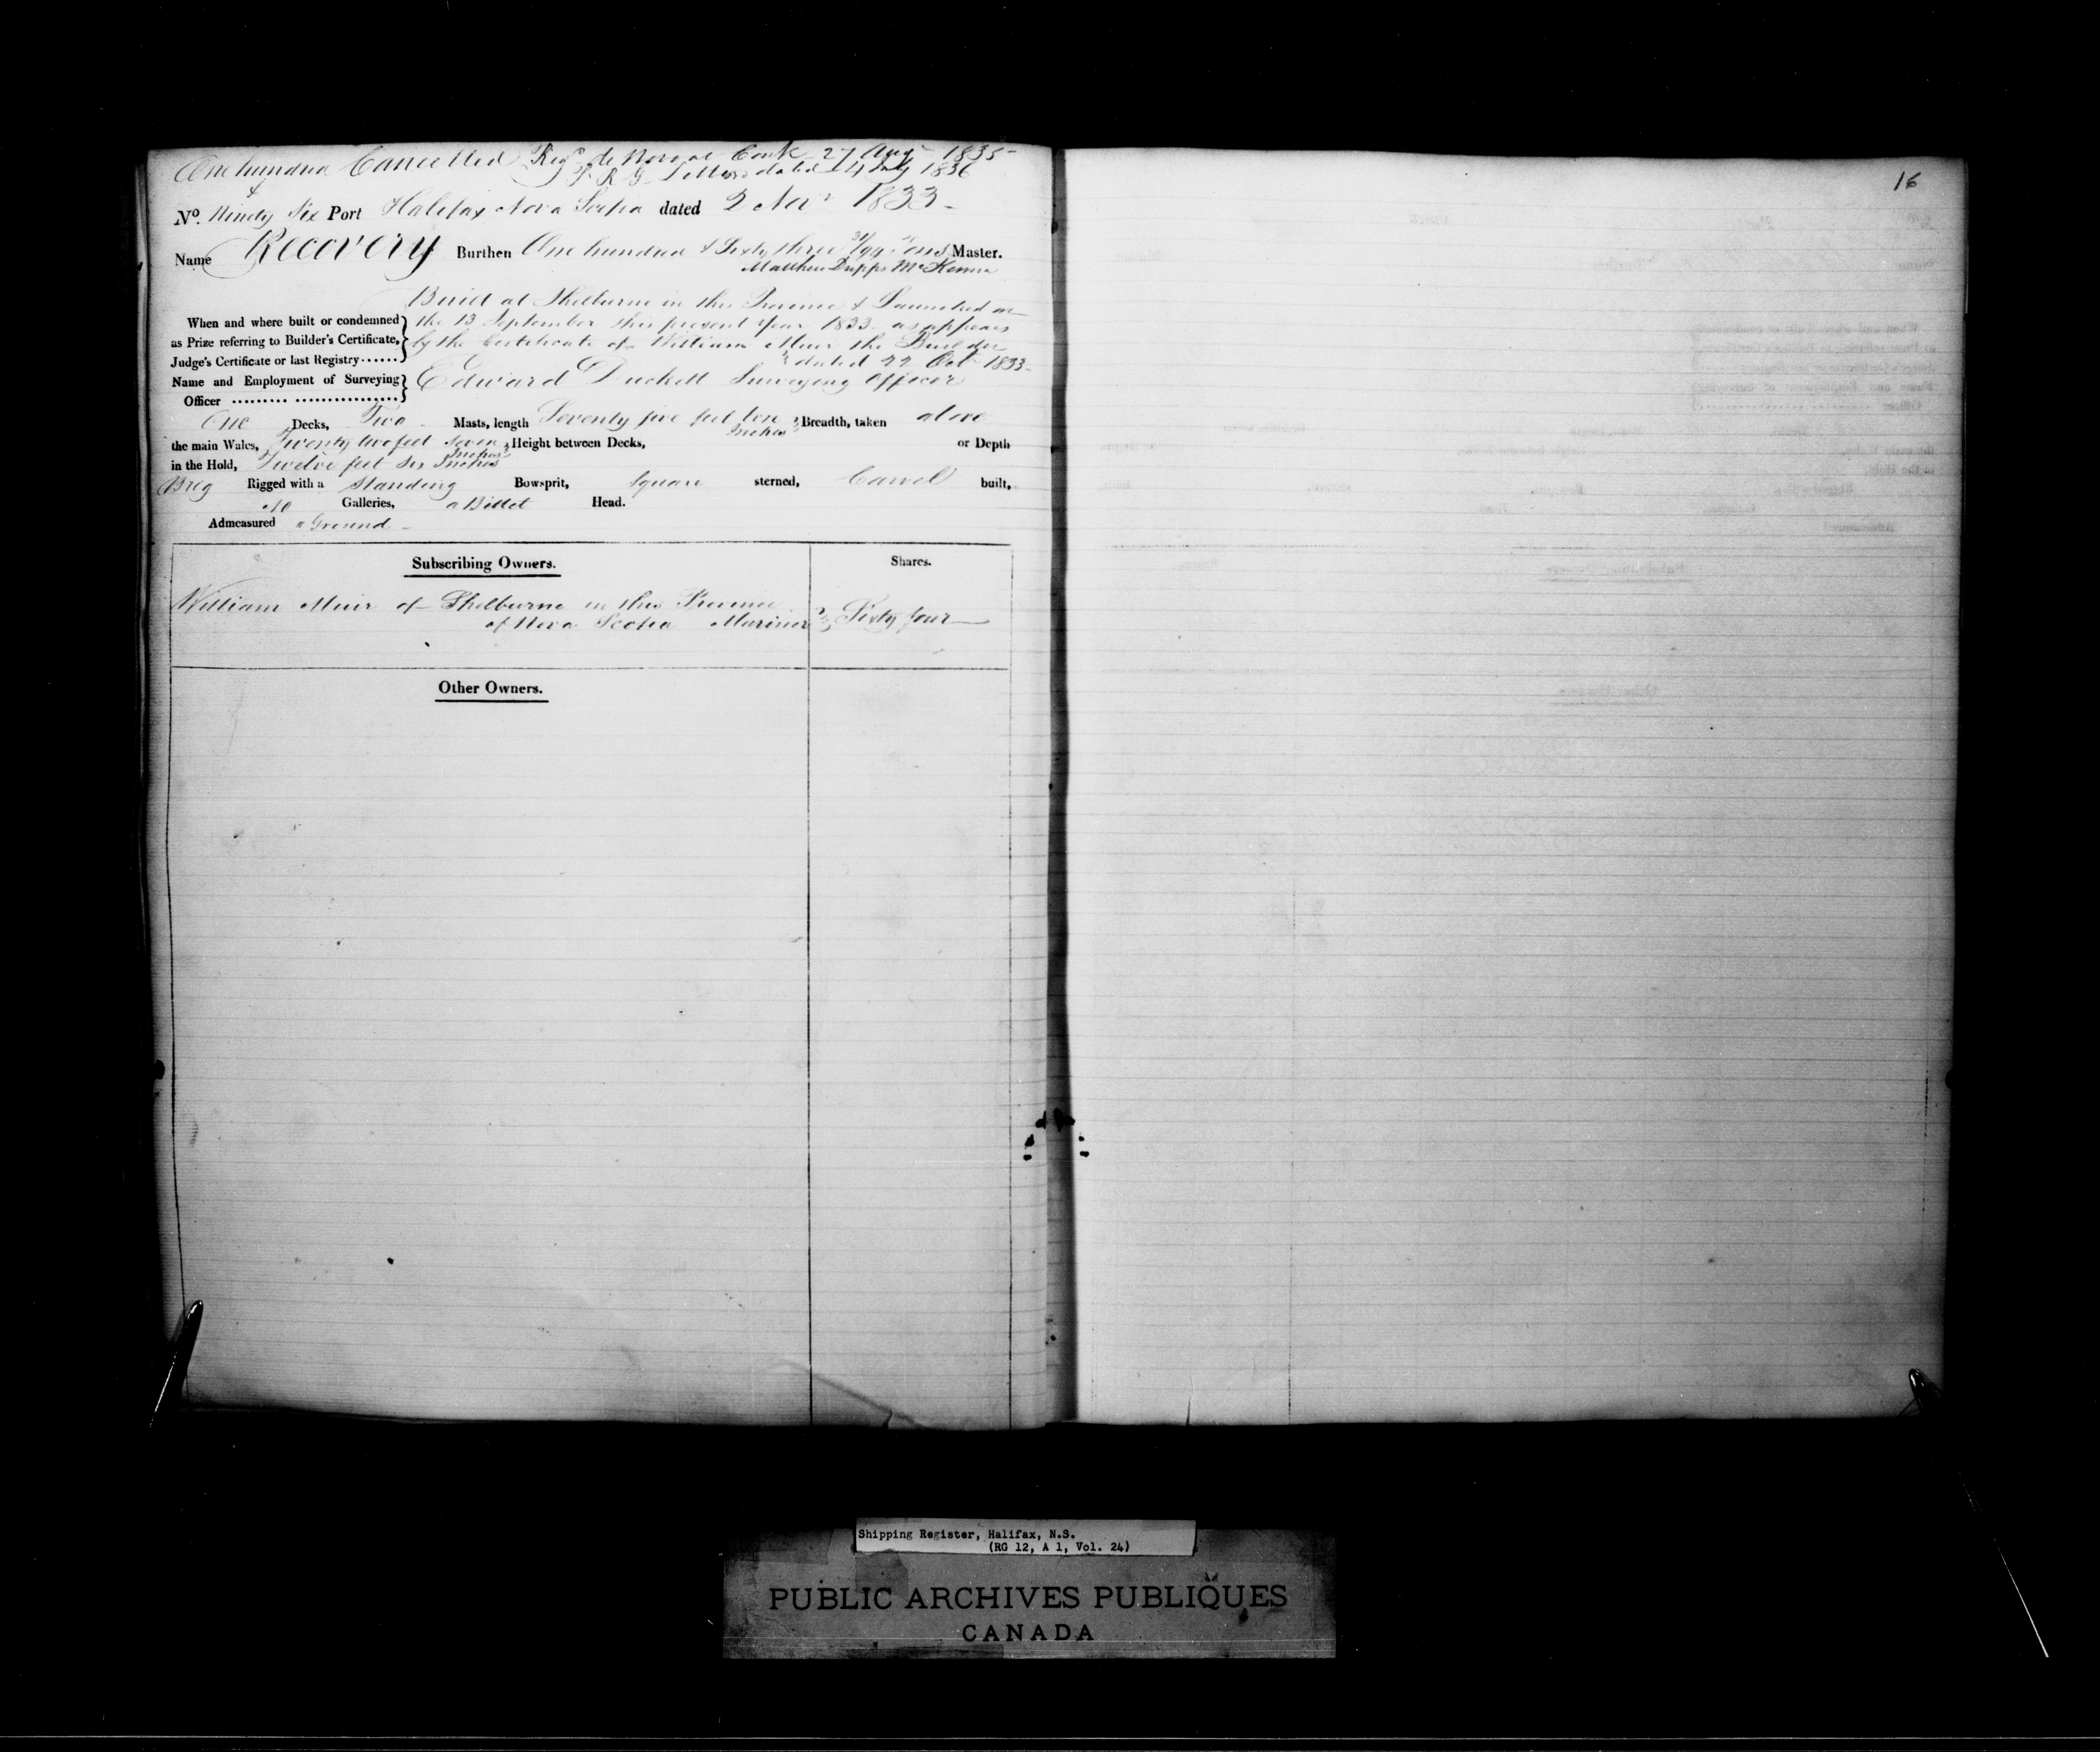 One hundred Cancelled Regd de Novo at Cork 27 Augt 1835
& P R G Letter dated 14 July 1836
No. Ninety Six Port Halifax Nova Scotia dated 2 Novr 1833
Name Recovery Burthen One hundred & Sixty three 31/94 Tons Master.
Matthew McKenna
Build at Shelburne in this Province & Launched on
When and where built or condemned the 13 September this present Year 1833 as appears
as Prize referring to Builder's Certificate, by the Certificate of William Muir the Builder
Judge's Certificate or last Registry...... dated 22 Oct 1833
Name and Employment of Surveying Edward Duckett Surveying Officer
Officer ......... .................
One Decks, Two Masts, length Seventy five feet Inches Breadth, taken above
the main Wales, Twenty two feet Seven Inches Height between Decks, or Depth
in the Hold, Twelve feet six Inches
Brig Rigged with a Standing Bowsprit, Square sterned, Carvel built,
No Galleries, a Billet Head.
Admeasured a Ground
Subscribing Owners. Shares.
William Muir of Shelburne in this Province
of Nova Scotia Mariner Sixty four
Other Owners.
16
Shipping Register, Halifax, N.S.
(RG 12, A 1, Vol. 24)
PUBLIC ARCHIVES PUBLIQUES
CANADA